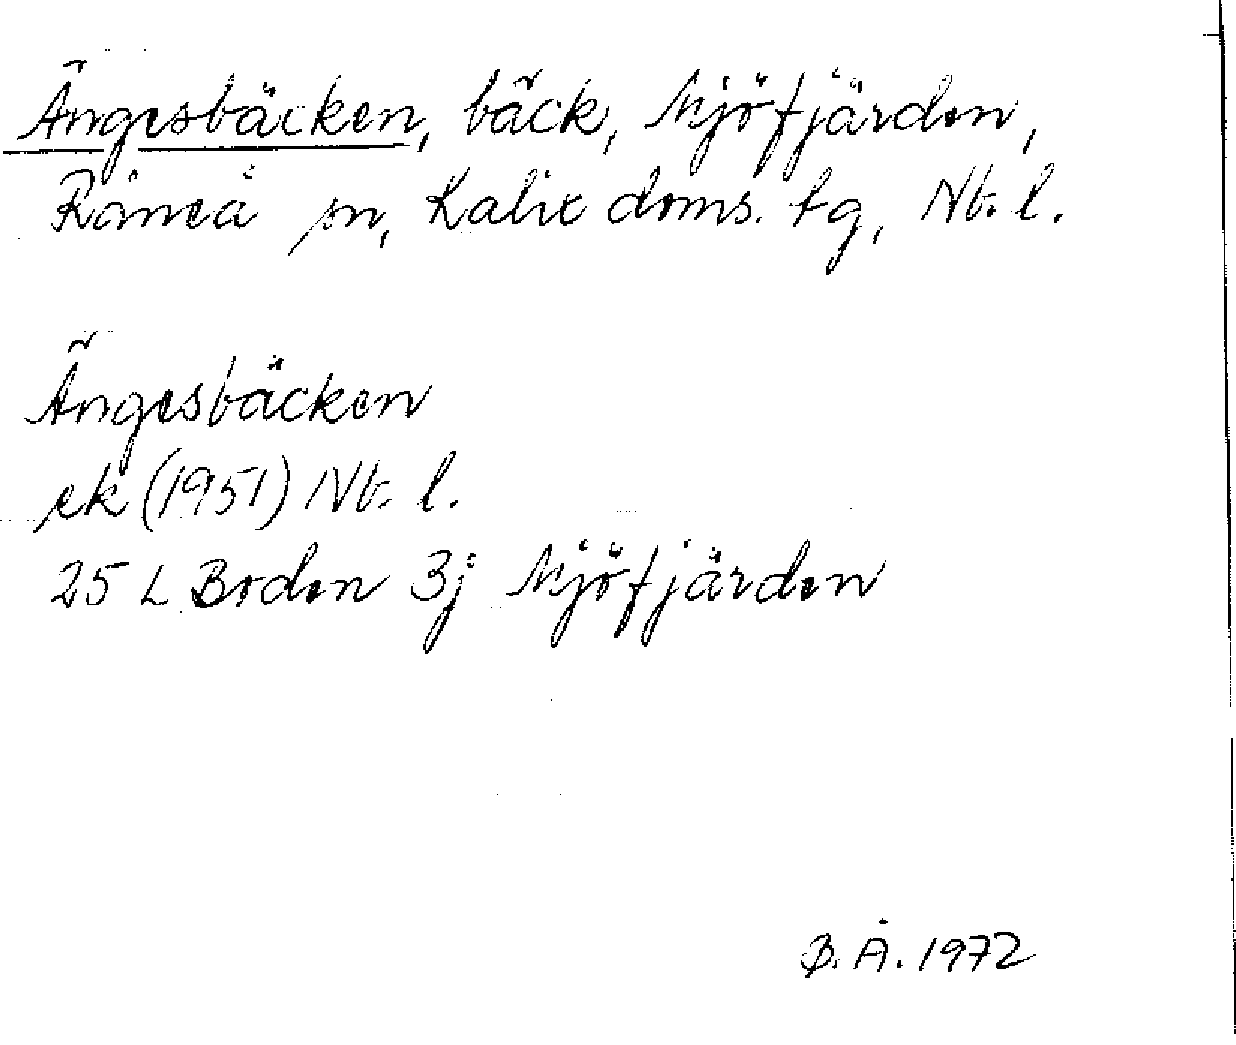 Ängesbäcken, bäck, Mjöfjärden,
Råneå sn, Kalix doms. tg, Nb. l.
Ängesbäcken
ek (1951) Nb. l.
25 L Boden 3j Mjöfjärden
B. Å. 1972